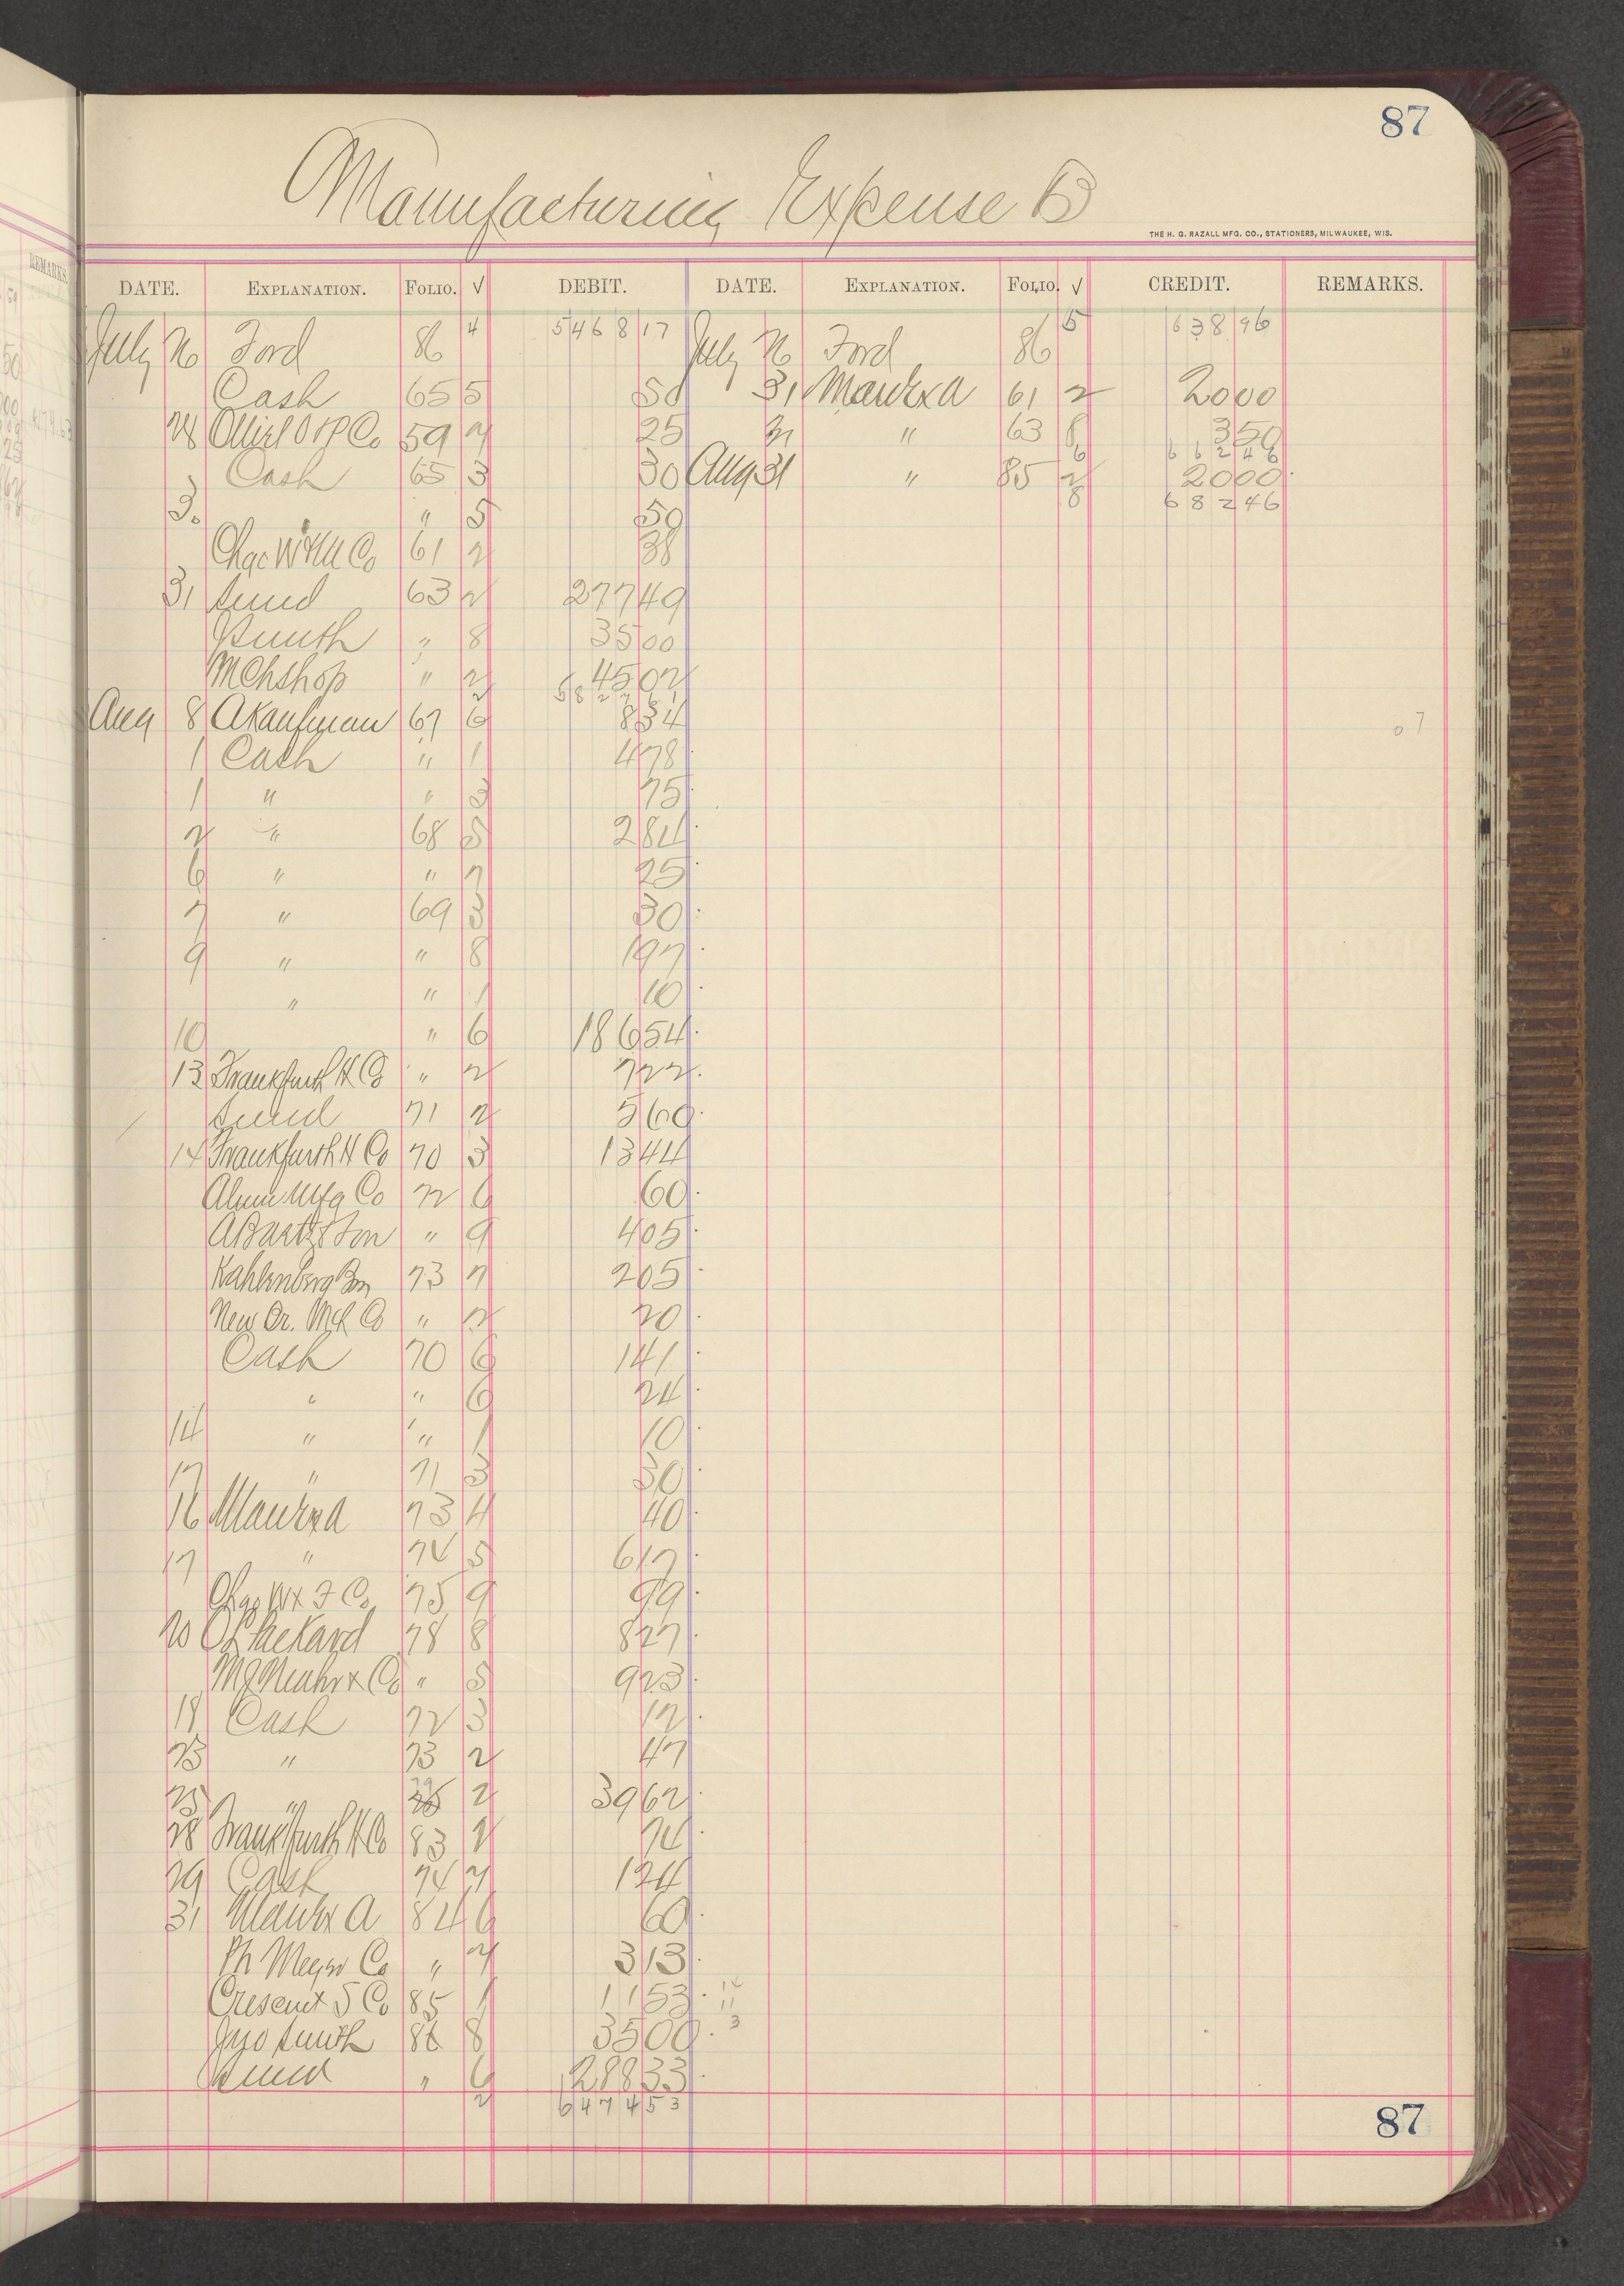 87
Manufacturing Expense B
THE H. G. RAZALL MFG. CO., STATIONERS, MILWAUKEE, WIS.
DATE. EXPLANATION. FOLIO. √ DEBIT. DATE. EXPLANATION. FOLIO. √ CREDIT. REMARKS.
July 26 Ford 86 4 5468 17 July 26 Ford 86 5 638 96
Cash 65 5 50 31 Manfx A 61 2 20 00
28 O & P Co 59 7 25 31 " 63 8 3 50
6 662 46
Cash 65 3 30 Aug 31 " 85 2 20 00
8 682 46
30 " 5 50
Chgo W & M Co 61 2 38
31 Sund 63 2 277 49
Smith " 8 35 00
M Ch shop " 2 45 02
2 5827 61
Aug 8 A Kaufman 67 6 8 34
1 Cash " 1 4 78
1 " " 3 75
2 " 68 5 2 84
6 " " 7 25
7 " 69 3 30
9 " " 8 1 97
" " 1 10
10 " 6 186 54
13 Frankfurth H Co " 2 7 22
Sund 71 2 5 60
14 Frankfurth H Co 70 3 13 44
Alum Mfg Co 72 6 60
A Bartz & Son " 9 4 05
Kahlenberg Bros 73 7 2 05
New Er. Mf Co " 2 20
Cash 70 6 1 41
" " 6 24
14 " " 1 10
17 " 71 3 30
16 Manfx A 73 4 40
17 " 74 5 6 17
75 9 99
20 Packard 78 8 8 27
Co " 5 9 23
18 Cash 72 3 12
23 " 73 2 47
25 " 2 39 62
28 Frankfurth H Co 83 2 74
29 Cash 74 7 1 24
31 Manfx A 84 6 60
Ph Meyer Co " 7 3 13
Cresent S Co 85 1 11 53
Jno Smith 86 8 35 00
Sund " 6 288 33
2 6474 53
87